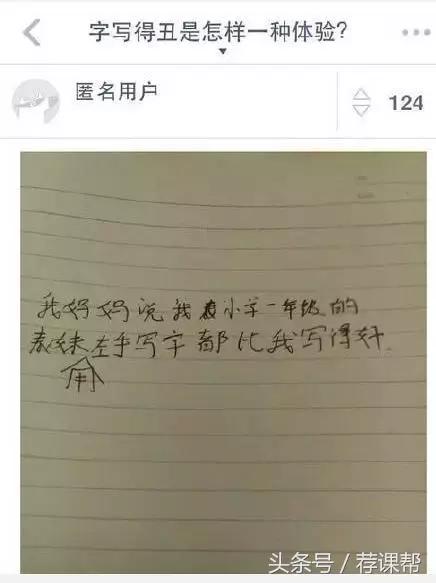 字写得丑是怎样一种体验?
匿名用户
124
我妈妈说我表小学一年级的
表妹左手写字都比我写得好.
用
头条号 / 荐课帮